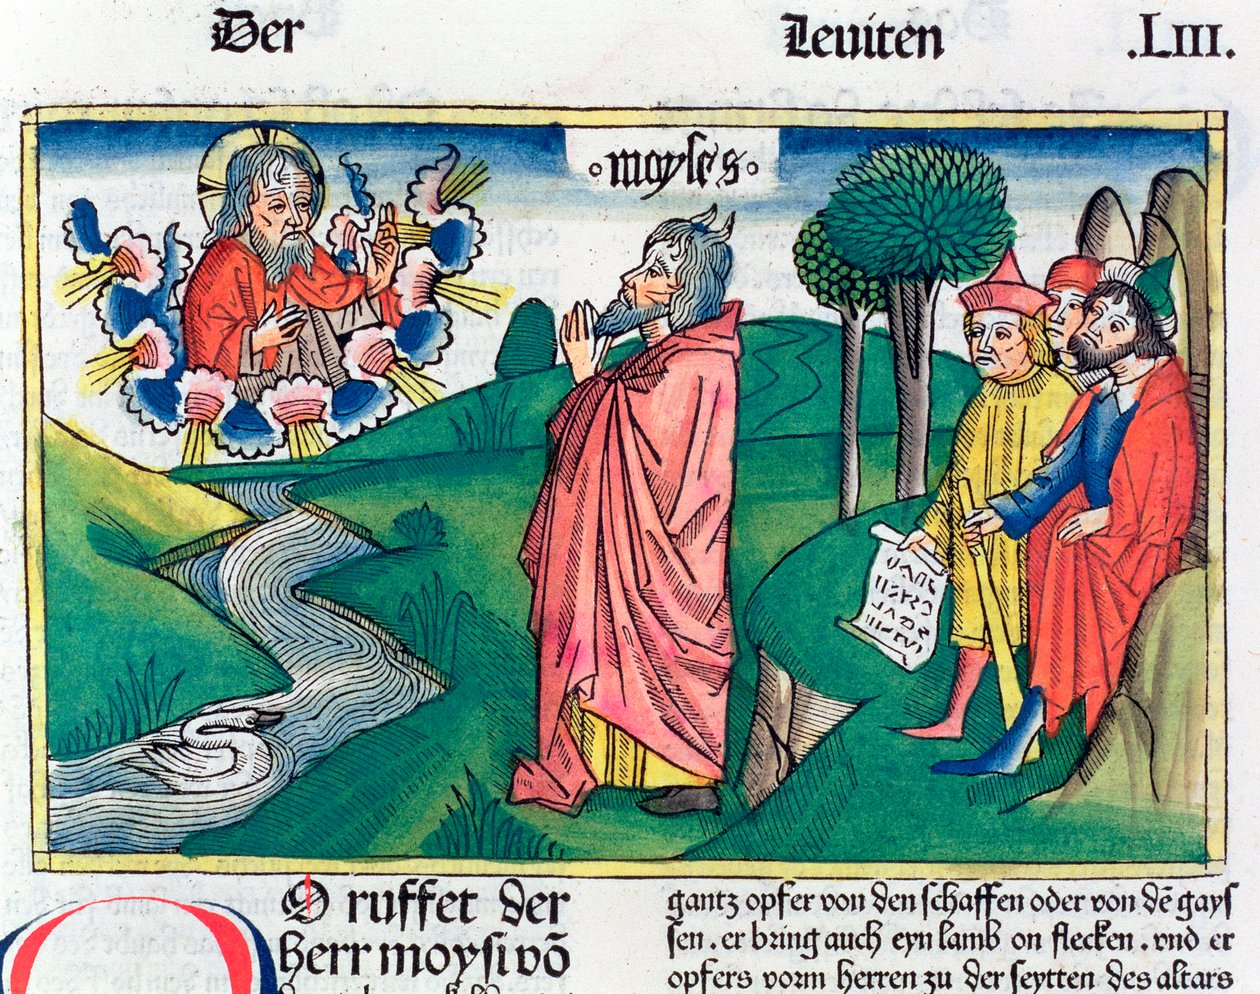 Der Leuiten .LIII.
moyses
O ruffet der
herr moysi võ
gantz opfer von den schaffen oder von dẽ gays
sen . er bring auch eyn lamb on flecken . vnd er
opfers vorm herren zu der seytten des altars